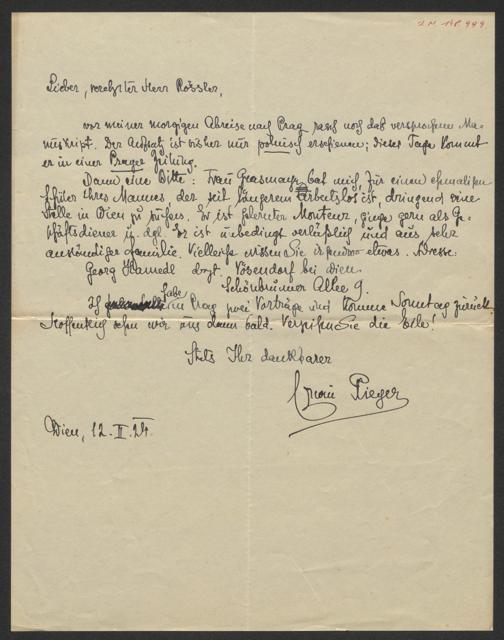 Lieber, verehrter Herr Rössler,
vor meiner morgigen Abreise nach Prag rasch noch das versprochene Ma-
nuskript. Der Aufsatz ist bisher nur polnisch erschienen; dieser Tage kommt
er in einer Prager Zeitung.
Dann eine Bitte: Frau bat mich, für einen ehemaligen
Schüler ihres Mannes, der seit längerem arbeitslos ist, dringend eine
Stelle in Wien zu suchen. Er ist gelernter Monteur, ginge gern als Ge-
schäftsdiener u. dgl. Er ist unbedingt verläßlich und aus sehr
anständiger Familie. Vielleicht wissen Sie irgendwo etwas. Adresse:
Georg dzt. Vösendorf bei Wien
Schönbrunner Allee 9.
Ich habe in Prag zwei Vorträge und komme Sonntag zurück.
Hoffentlich sehn wir uns dann bald. Verzeihen Sie die Eile!
Stets Ihr dankbarer
Erwin Rieger
Wien, 12. II. 24.